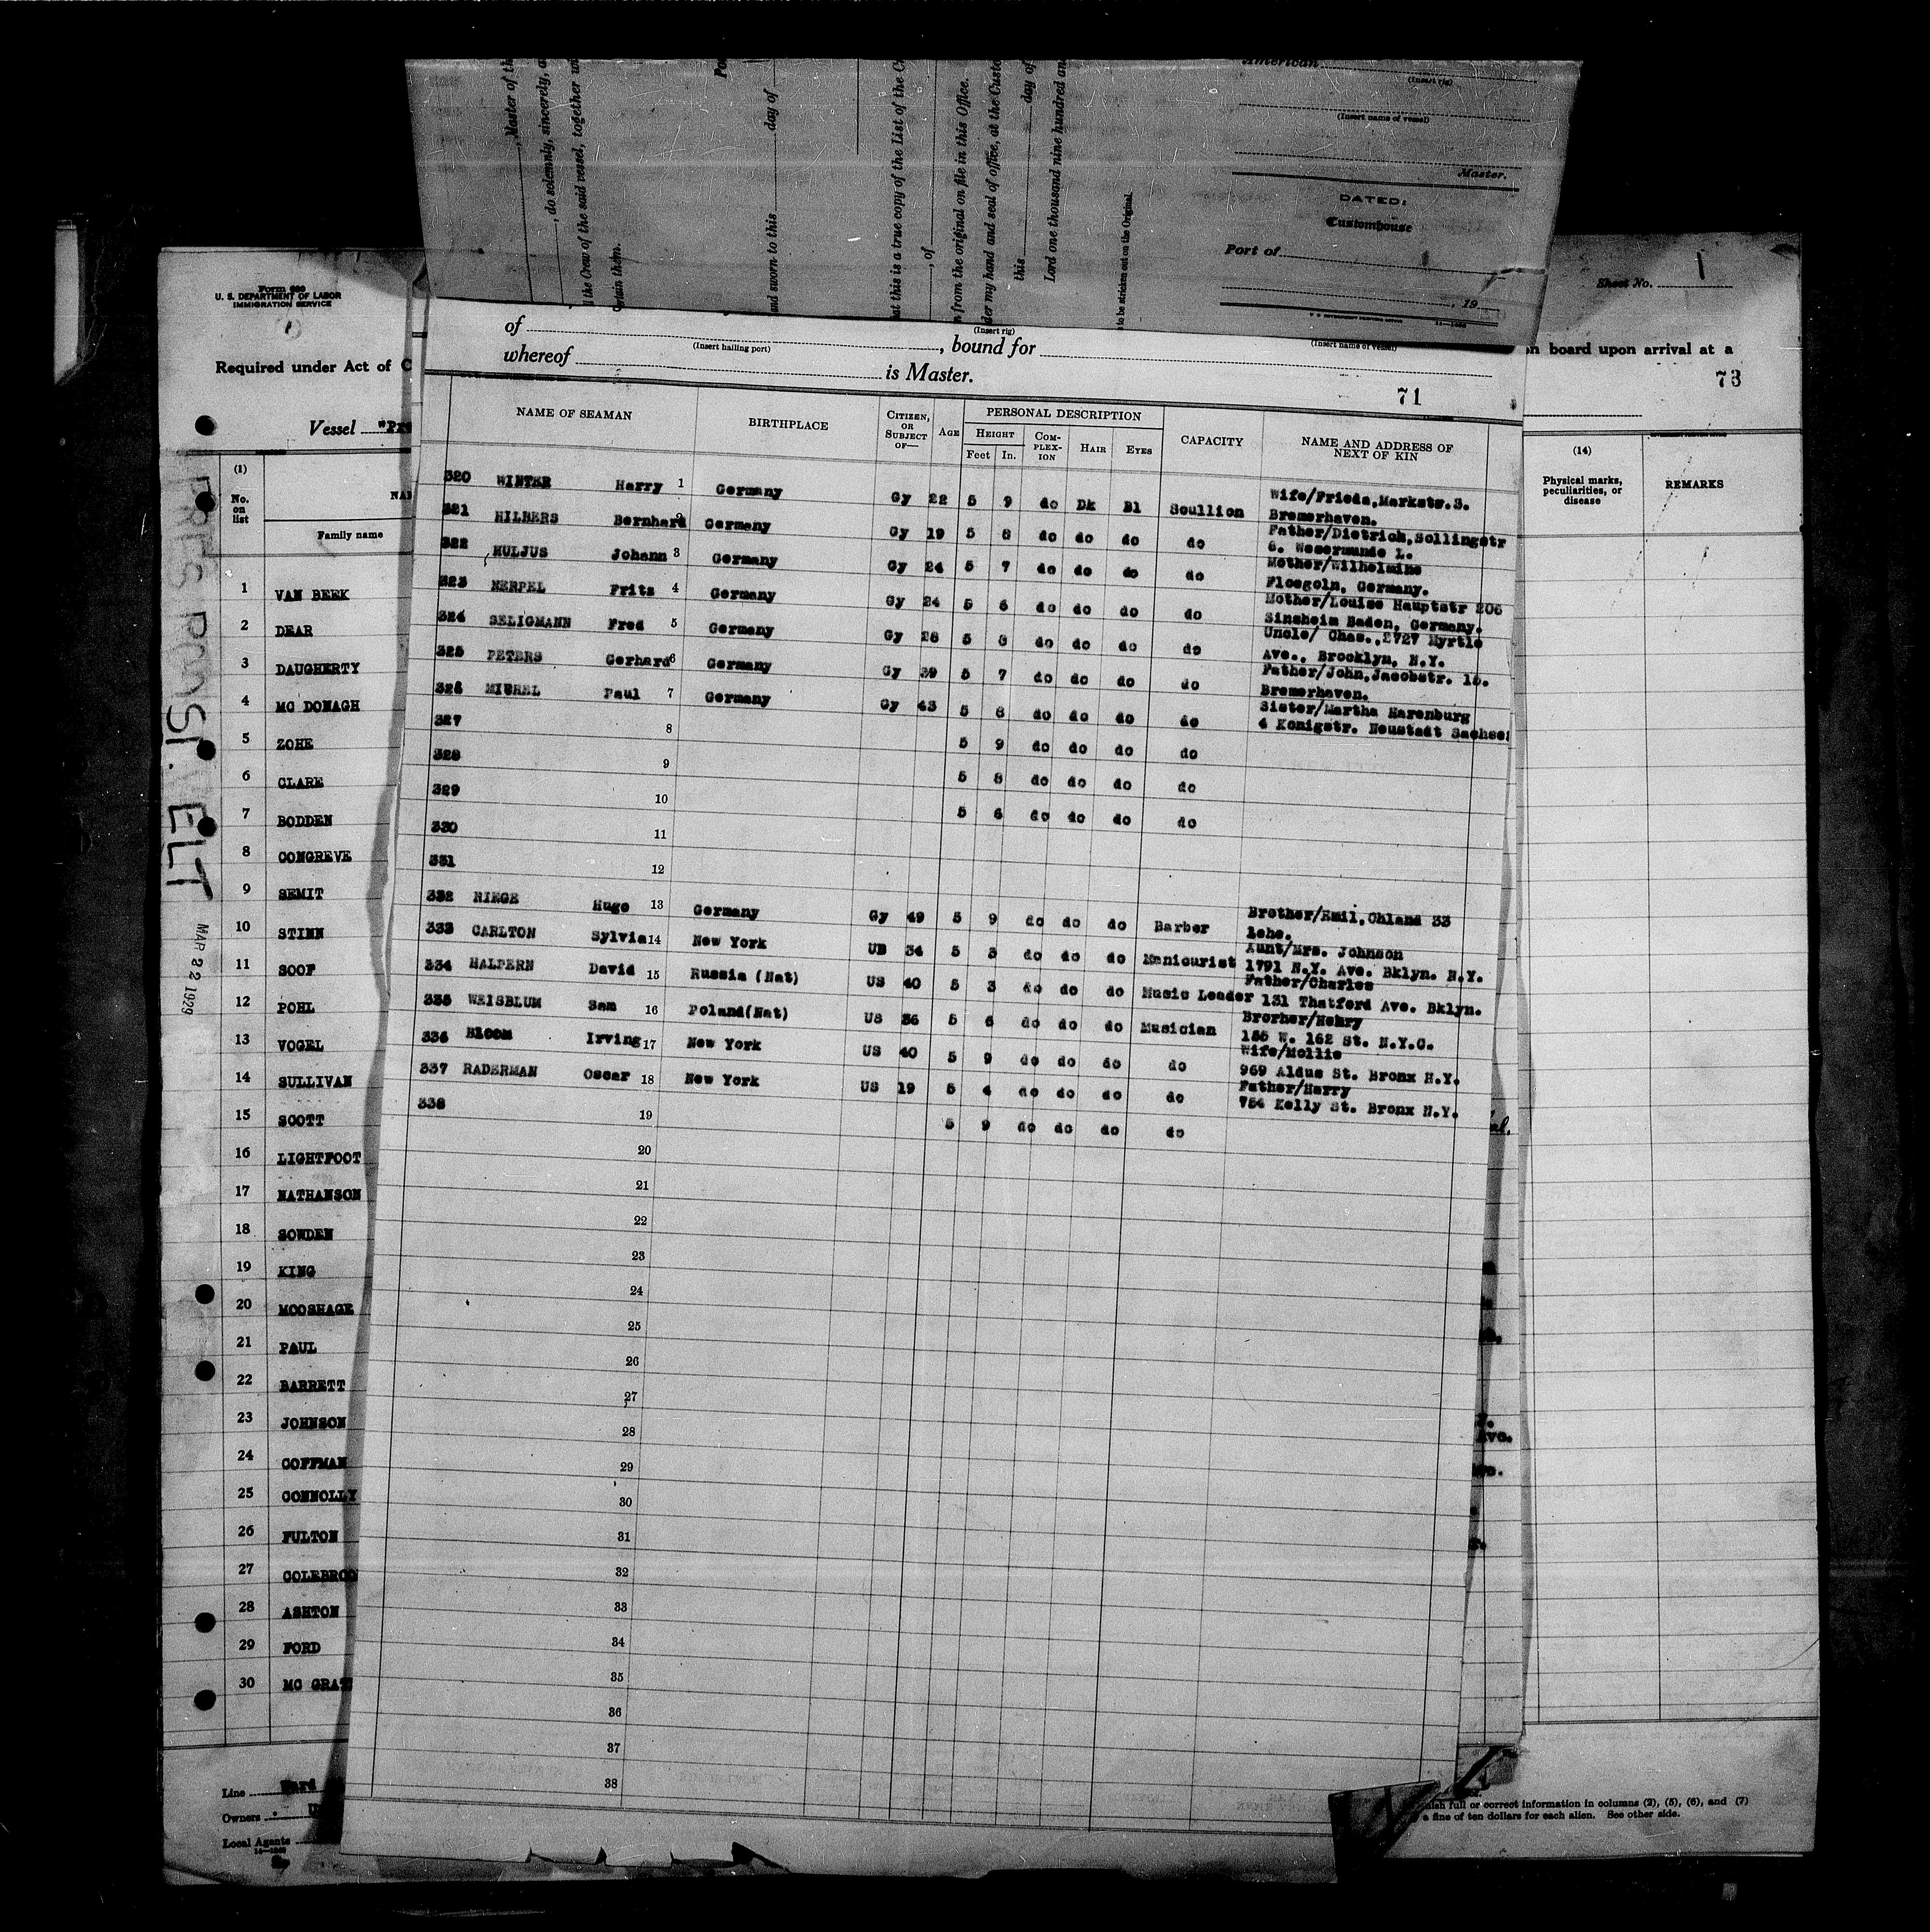 Master of th
, do solemnly, sincerely, a
ll the Crew of the said vessel, together wi
day of
and sworn to this
at this is a true copy of the List of the C
, of
from the original on file in this Office.
der my hand and seal of office, at the Custo
this day of
Lord one thousand nine hundred an
to be stricken out on the Original.
American
(Insert rig)
(Insert name of vessel)
Master.
DATED:
Customhouse
Port of
, 19
U. S. DEPARTMENT OF LABOR
IMMIGRATION SERVICE
Required under Act of C
Vessel
Sheet No. 1
on board upon arrival at a
73
of (Insert rig) (Insert name of vessel)
(Insert hailing port) , bound for
whereof is Master.
71
NAME OF SEAMAN BIRTHPLACE CITIZEN, OR SUBJECT OF— AGE PERSONAL DESCRIPTION CAPACITY NAME AND ADDRESS OF NEXT OF KIN
HEIGHT COM-PLEX-ION HAIR EYES
Feet In.
320 WINTER Harry 1 Germany Gy 22 5 9 do Dk Bl Scullion Wife/Frieda,Markstr.3.
Bremerhaven.
321 HILBERS Bernhard 2 Germany Gy 19 5 8 do do do do Father/Dietrich,Sollingstr
6. Wesermunde L.
322 MULJUS Johann 3 Germany Gy 24 5 7 do do do do Mother/Wilhelmine
Floegeln, Germany.
323 MERPEL Fritz 4 Germany Gy 24 5 6 do do do do Mother/Louise Hauptstr 206
Sinsheim Baden, Germany.
324 SELIGMANN Fred 5 Germany Gy 28 5 8 do do do do Uncle/ Chas.,2727 Myrtle
Ave., Brooklyn, N.Y.
325 PETERS Gerhard 6 Germany Gy 39 5 7 do do do do Father/John,Jacobstr. 15.
Bremerhaven.
326 Paul 7 Germany Gy 43 5 8 do do do do Sister/Martha Harenburg
4 Konigstr. Neustadt Sachse
327 8 5 9 do do do do
328 9 5 8 do do do do
329 10 5 6 do do do do
330 11
331 12
332 RIEGE Hugo 13 Germany Gy 49 5 9 do do do Barber Brother/Emil,Chland 33
Lehe.
333 CARLTON Sylvia 14 New York US 34 5 3 do do do Manicurist Aunt/Mrs. Johnson
1791 N.Y. Ave. Bklyn. N.Y.
334 HALPERN David 15 Russia (Nat) US 40 5 3 do do do Music Leader Father/Charles
131 Thatford Ave. Bklyn.
335 WEISBLUM Sam 16 Poland(Nat) US 36 5 6 do do do Musician Brorher/Henry
155 W. 162 St. N.Y.C.
336 Bloom Irving 17 New York US 40 5 9 do do do do Wife/Mollie
969 Aldus St. Bronx N.Y.
337 RADERMAN Oscar 18 New York US 19 5 4 do do do do Father/Harry
754 Kelly St. Bronx N.Y.
338 19 5 9 do do do do
20
21
22
23
24
25
26
27
28
29
30
31
32
33
34
35
36
37
38
(1)
No. on list
Family name
1 VAN BEEK
2 DEAR
3 DAUGHERTY
4 MC DONAGH
5 ZOHE
6 CLARE
7 BODDEN
8 CONGREVE
9 SEMIT
10 STINN
11 SOOF
12 POHL
13 VOGEL
14 SULLIVAN
15 SCOTT
16 LIGHTFOOT
17 NATHANSON
18 SOWDEN
19 KING
20 MOOSHAGE
21 PAUL
22 BARRETT
23 JOHNSON
24 COFFMAN
25 CONNOLLY
26 FULTON
27 COLEBROO
28 ASHTON
29 FORD
30 MC GRAT
Line Ward
Owners
Local Agents
MAR 22 1929
(14)
Physical marks, peculiarities, or disease
REMARKS
Ave.
nish full or correct information in columns (2), (5), (6), and (7)
a fine of ten dollars for each alien. See other side.